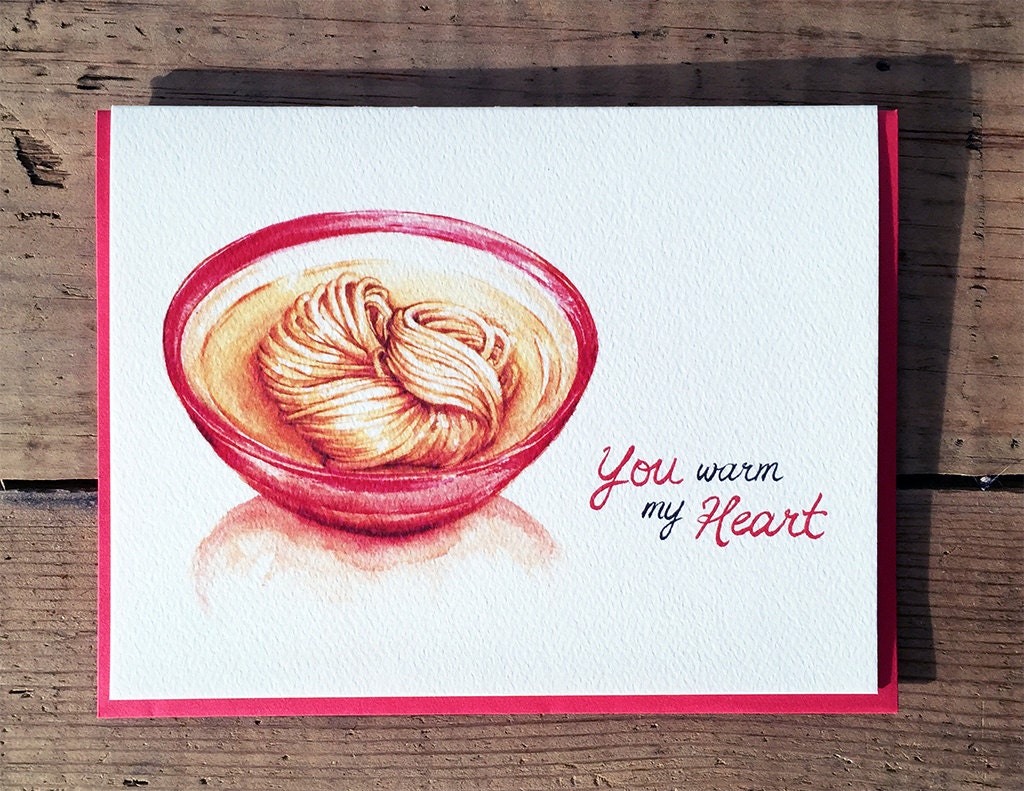 You warm
my Heart